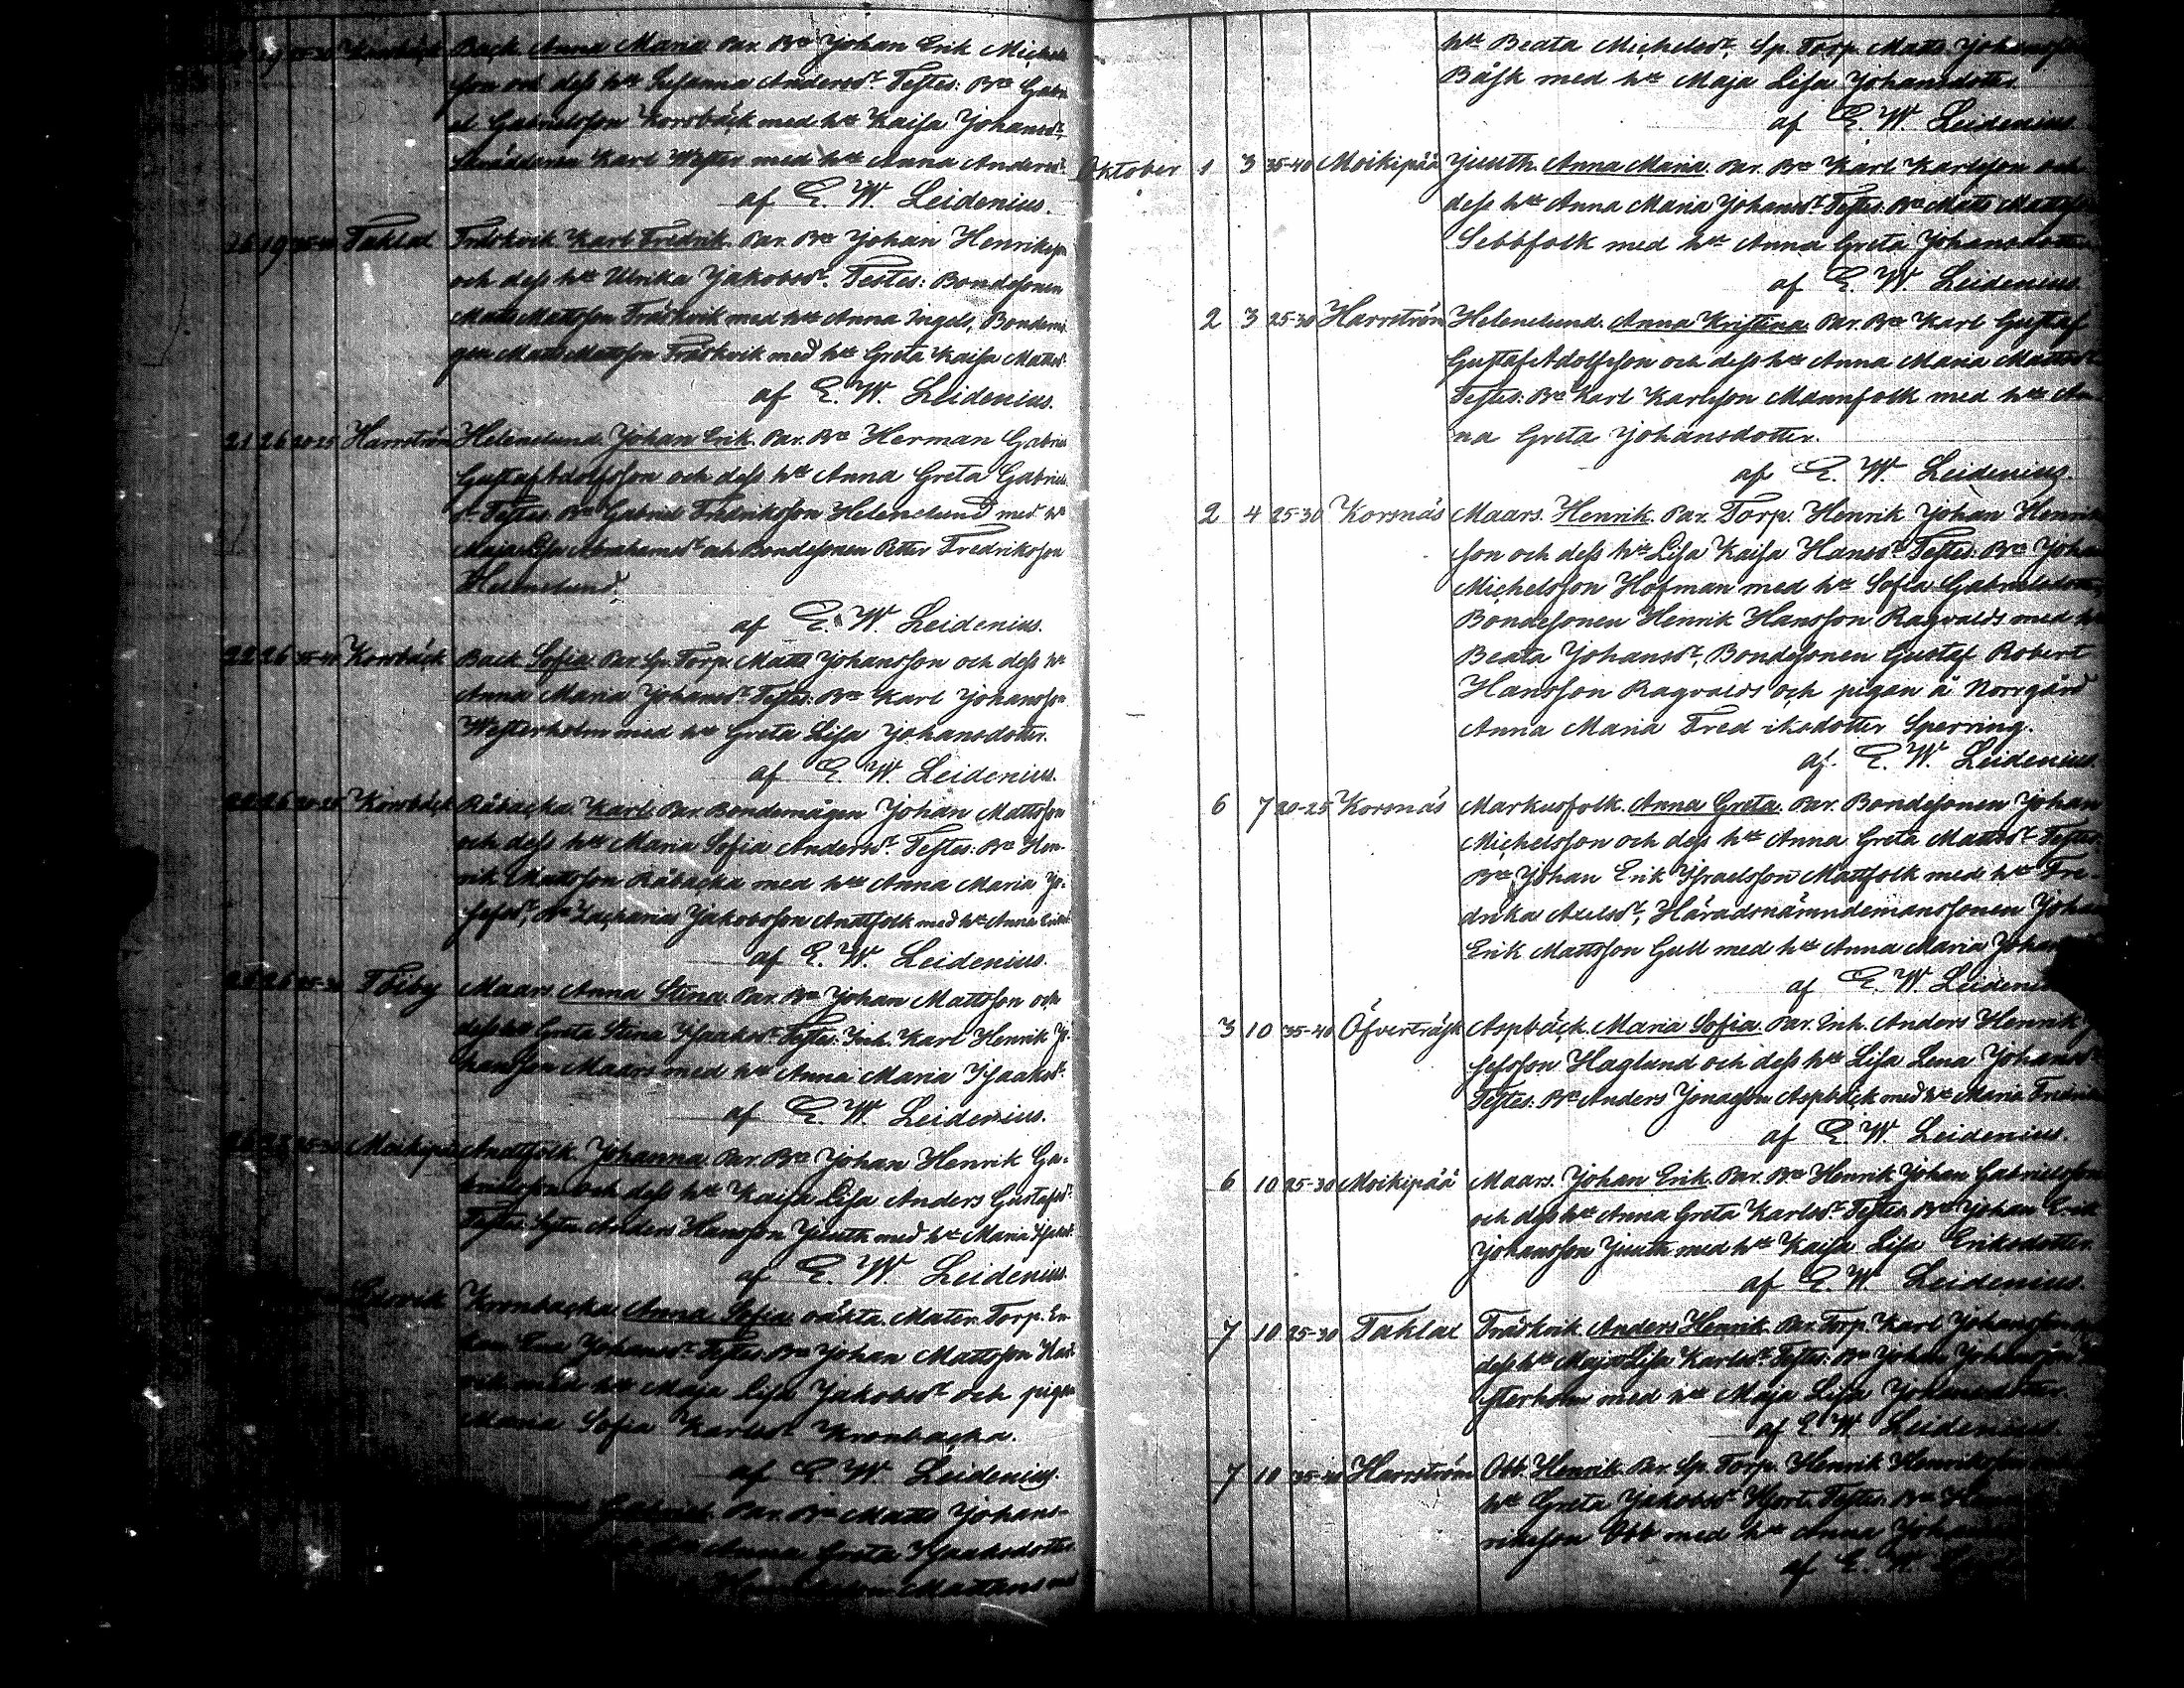 19 25-30 Korsbäck Back. Anna Maria. Par. Bn Johan Erik Michels
son och dess hu Susanna Andersdr. Testes: Bn Gabri
el Gabrielsson Korsbäck med hu Kaisa Johansdr,
Skräddaren Karl Wester med hu Anna Andersdr.
af E. W. Leidenius.
19 Taklax Träskvik. Karl Fredrik. Par. Bn Johan Henriksson
och dess hu Ulrika Jakobsdr. Testes: Bondesonen
Matts Mattsson Träskvik med hu Anna Ingels, Bondemå
gen Matts Mattsson Träskvik med hu Greta Kaisa Mattsdr.
af E. W. Leidenius.
21 26 20-25 Harrström Helenelund. Johan Erik. Par. Bn Herman Gabriel
Gustaf Adolfsson och dess hu Anna Greta Gabriels
dr. Testes. Bn Gabriel Fredriksson Helenelund med hu
Maja Lisa Abrahamsdr och Bondesonen Petter Fredriksson
Helenelund.
af E. W. Leidenius.
22 26 35-40 Korsbäck Back. Sofia. Par. Sp. Torp. Matts Johansson och dess hu
Anna Maria Johansdr. Testes: Bn Karl Johansson
Westerholm med hu Greta Lisa Johansdotter.
af E. W. Leidenius.
22 26 20-25 Korsbäck Råbacka. Karl. Par. Bondemågen Johan Mattsson
och dess hu Maria Sofia Andersdr. Testes: Bn Hen-
rik Mattsson Råbacka med hu Anna Maria Jo-
sefsdr, Bn Zacharias Jakobsson Anttfolk med hu Anna
af E. W. Leidenius.
26 25-30 Töiby Maars. Anna Stina. Par. Bn Johan Mattsson och
dess hu Greta Stina Isaaksdr. Testes: Inh. Karl Henrik Jo-
hansson Maars med hu Anna Maria Isaaksdr.
af E. W. Leidenius.
Moikipää Anttfolk. Johanna. Par. Bn Johan Henrik Ga-
brielsson och dess hu Kaisa Lisa Anders Gustafsdr.
Testes: Anders Hansson Juuth med hu Maria
af E. W. Leidenius.
Kronbacka. Anna Sofia. oäkta. Mater. Torp. En-
kan Eva Johansdr. Testes: Bn Johan Mattsson
med hu Maja Lisa Jakobsdr och pigan
Maria Sofia Karlsdr Kronbacka.
af E. W. Leidenius.
Gabriel. Par. Bn Matts Johans-
hu Anna Greta Isaaksdotter
Mattans med
hu Beata Michelsdr, Sp. Torp. Matts Johansson
Båsk med hu Maja Lisa Johansdotter
af E. W. Leidenius.
Oktober 1 3 35-40 Moikipää Juuth. Anna Maria. Par. Bn Karl Karlsson och
dess hu Anna Maria Johansdr. Testes. Bn Matts Mattsson
Sebbfolk med hu Anna Greta Johansdotter
af E. W. Leidenius.
2 3 25-30 Harrström Helenelund. Anna Kristina. Par. Bn Karl Gustaf
Gustaf Adolfsson och dess hu Anna Maria Mattsdr
Testes: Bn Karl Karlsson Mannfolk med hu An-
na Greta Johansdotter.
af E. W. Leidenius.
2 4 25-30 Korsnäs Maars. Henrik. Par. Torp. Henrik Johan Henriks
son och dess hu Lisa Kaisa Hansdr. Testes: Bn Johan
Michelsson Hofman med hu Sofia Gabrielsdotter,
Bondesonen Henrik Hansson Ragvalds med hu
Beata Johansdr, Bondesonen Gustaf Robert
Hansson Ragvalds och pigan å Norrgård
Anna Maria Fredriksdotter Sperring.
af. E. W. Leidenius
6 7 20-25 Korsnäs Markusfolk. Anna Greta. Par. Bondesonen Johan
Michelsson och dess hu Anna Greta Mattsdr. Testes
Bn Johan Erik Israelsson Mattfolk med hu Fre-
drika Axelsdr, Häradsnämndemanssonen Johan
Erik Mattsson Gull med hu Anna Maria Johan
af E. W. Leideni
3 10 35-40 Öfverträsk Aspbäck. Maria Sofia. Par. Inh. Anders Henrik
sefsson Haglund och dess hu Lisa Lena Johansdr
Testes: Bn Anders Jonasson Aspbäck med hu Maria Fredriks
af E. W. Leidenius.
6 10 25-30 Moikipää Maars. Johan Erik. Par. Bn Henrik Johan Gabrielsson
och dess hu Anna Greta Karlsdr. Testes. Bn Johan Erik
Johansson Juuth med hu Kaisa Lisa Eriksdotter.
af E. W. Leidenius.
7 10 25-30 Taklax Träskvik. Anders Henrik. Par. Torp. Karl Johansson
dess hu Maja Lisa Karlsdr. Testes: Bn Johan Johansson
esterholm med hu Maja Lisa Johansdotter
af E. W. Leidenius
7 10 35-40 Harrström Obb. Henrik. Par. Sp. Torp. Henrik Henriksson
hu Greta Jakobsdr Hjort. Testes. Bn Hen
riksson Obb med hu Anna Johans
af E. W.